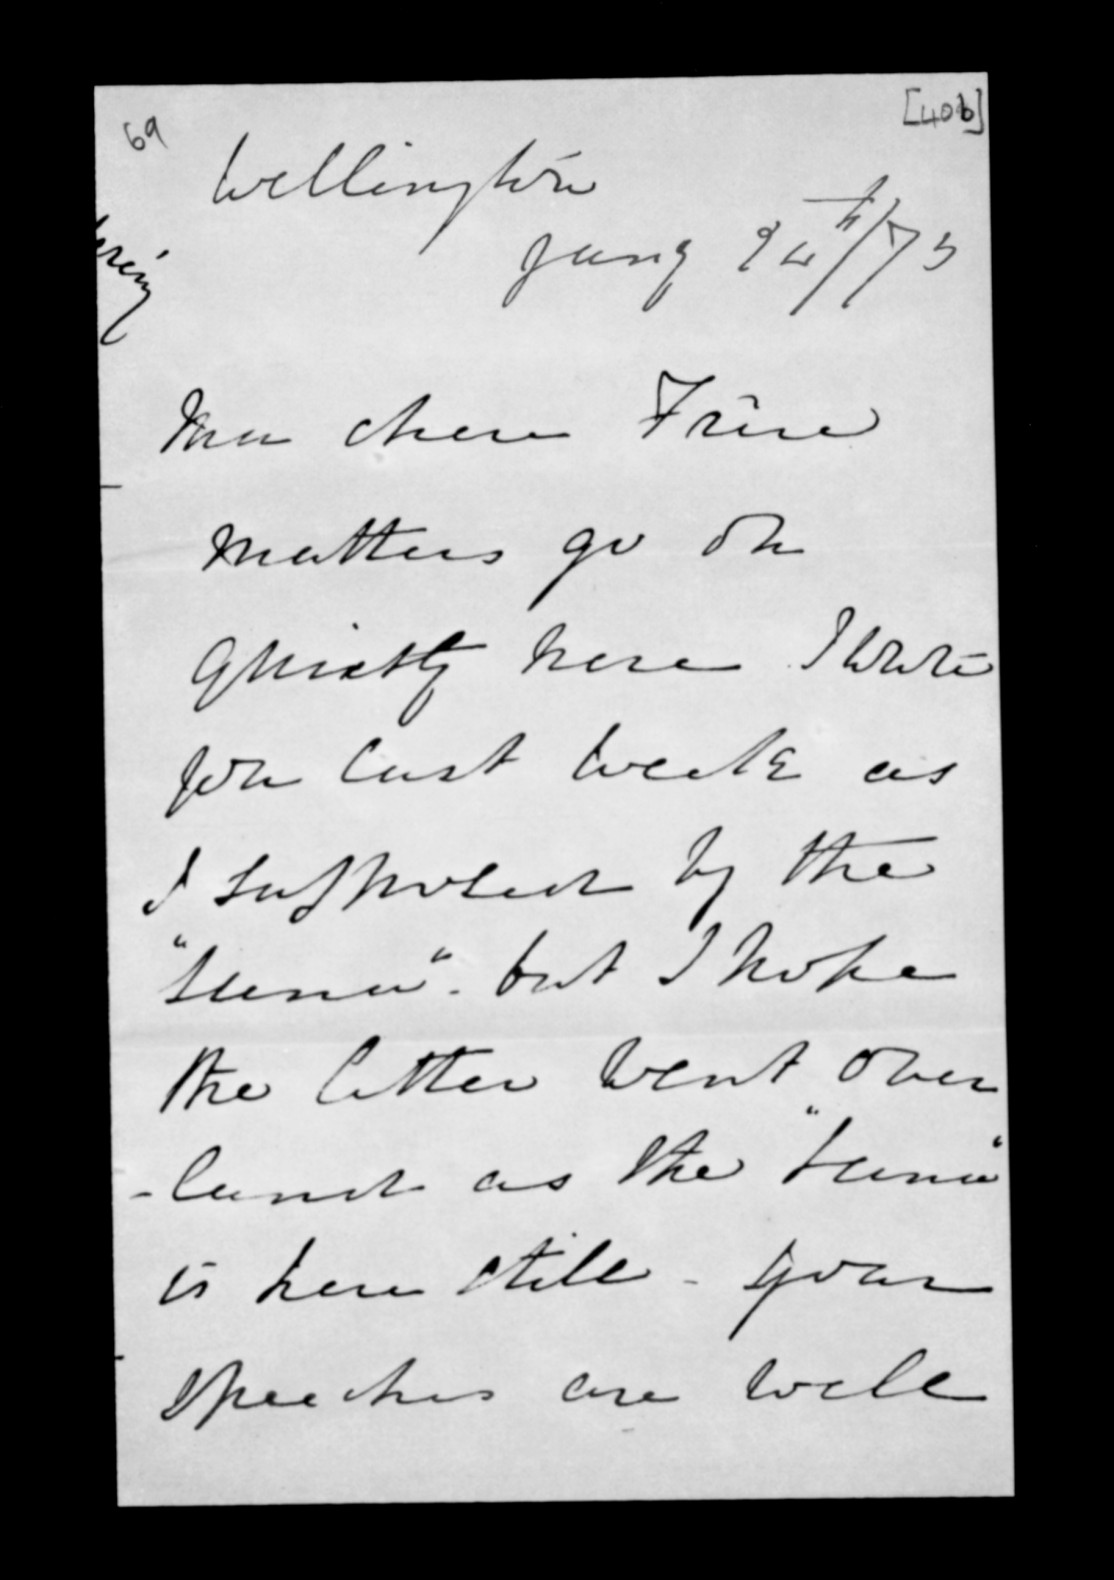 69
[406]
Wellington
Jany 24th/73
Mon chere Frère
Matters go on
quietly here I wrote
you last week as
I supposed by the
"Luna" - but I hope
the letter went over
- land as the "Luna"
is here still - your
speeches are well